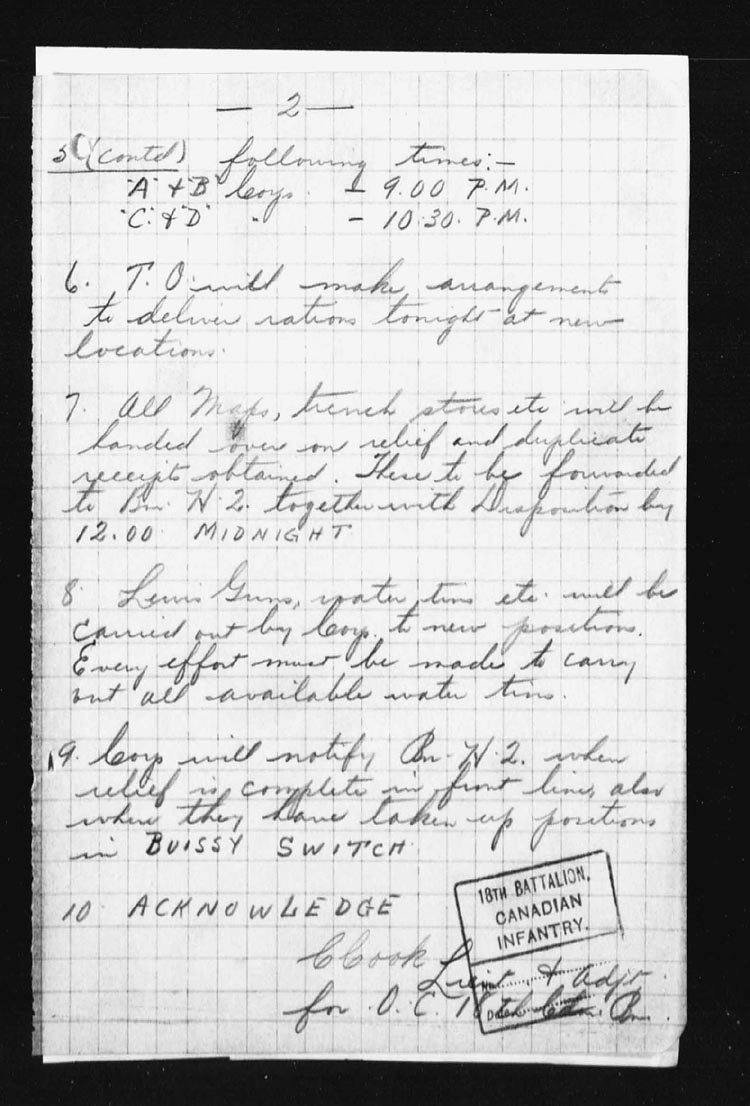 — 2 —
5 (contd) following times:-
"A" & "B" Coys. - 9.00 P.M.
"C" & "D" " - 10.30. P.M.
6. T.O. will make arrangements
to deliver rations tonight at new
locations.
7. All Maps, trench stores etc will be
handed over on relief and duplicate
receipts obtained. These to be forwarded
to Bn. H.Q. together with Disposition by
12.00 MIDNIGHT
8. Lewis Guns, water tins etc. will be
carried out by Coys. to new positions.
Every effort must be made to carry
out all available water tins.
9. Coys will notify Bn. H.Q. when
relief is complete in front line, also
when they have taken up positions
in BUISSY SWITCH
10 ACKNOWLEDGE
18TH BATTALION,
CANADIAN
INFANTRY.
CCook
Lieut. & Adjt.
for O.C. 18th Cdn. Bn.